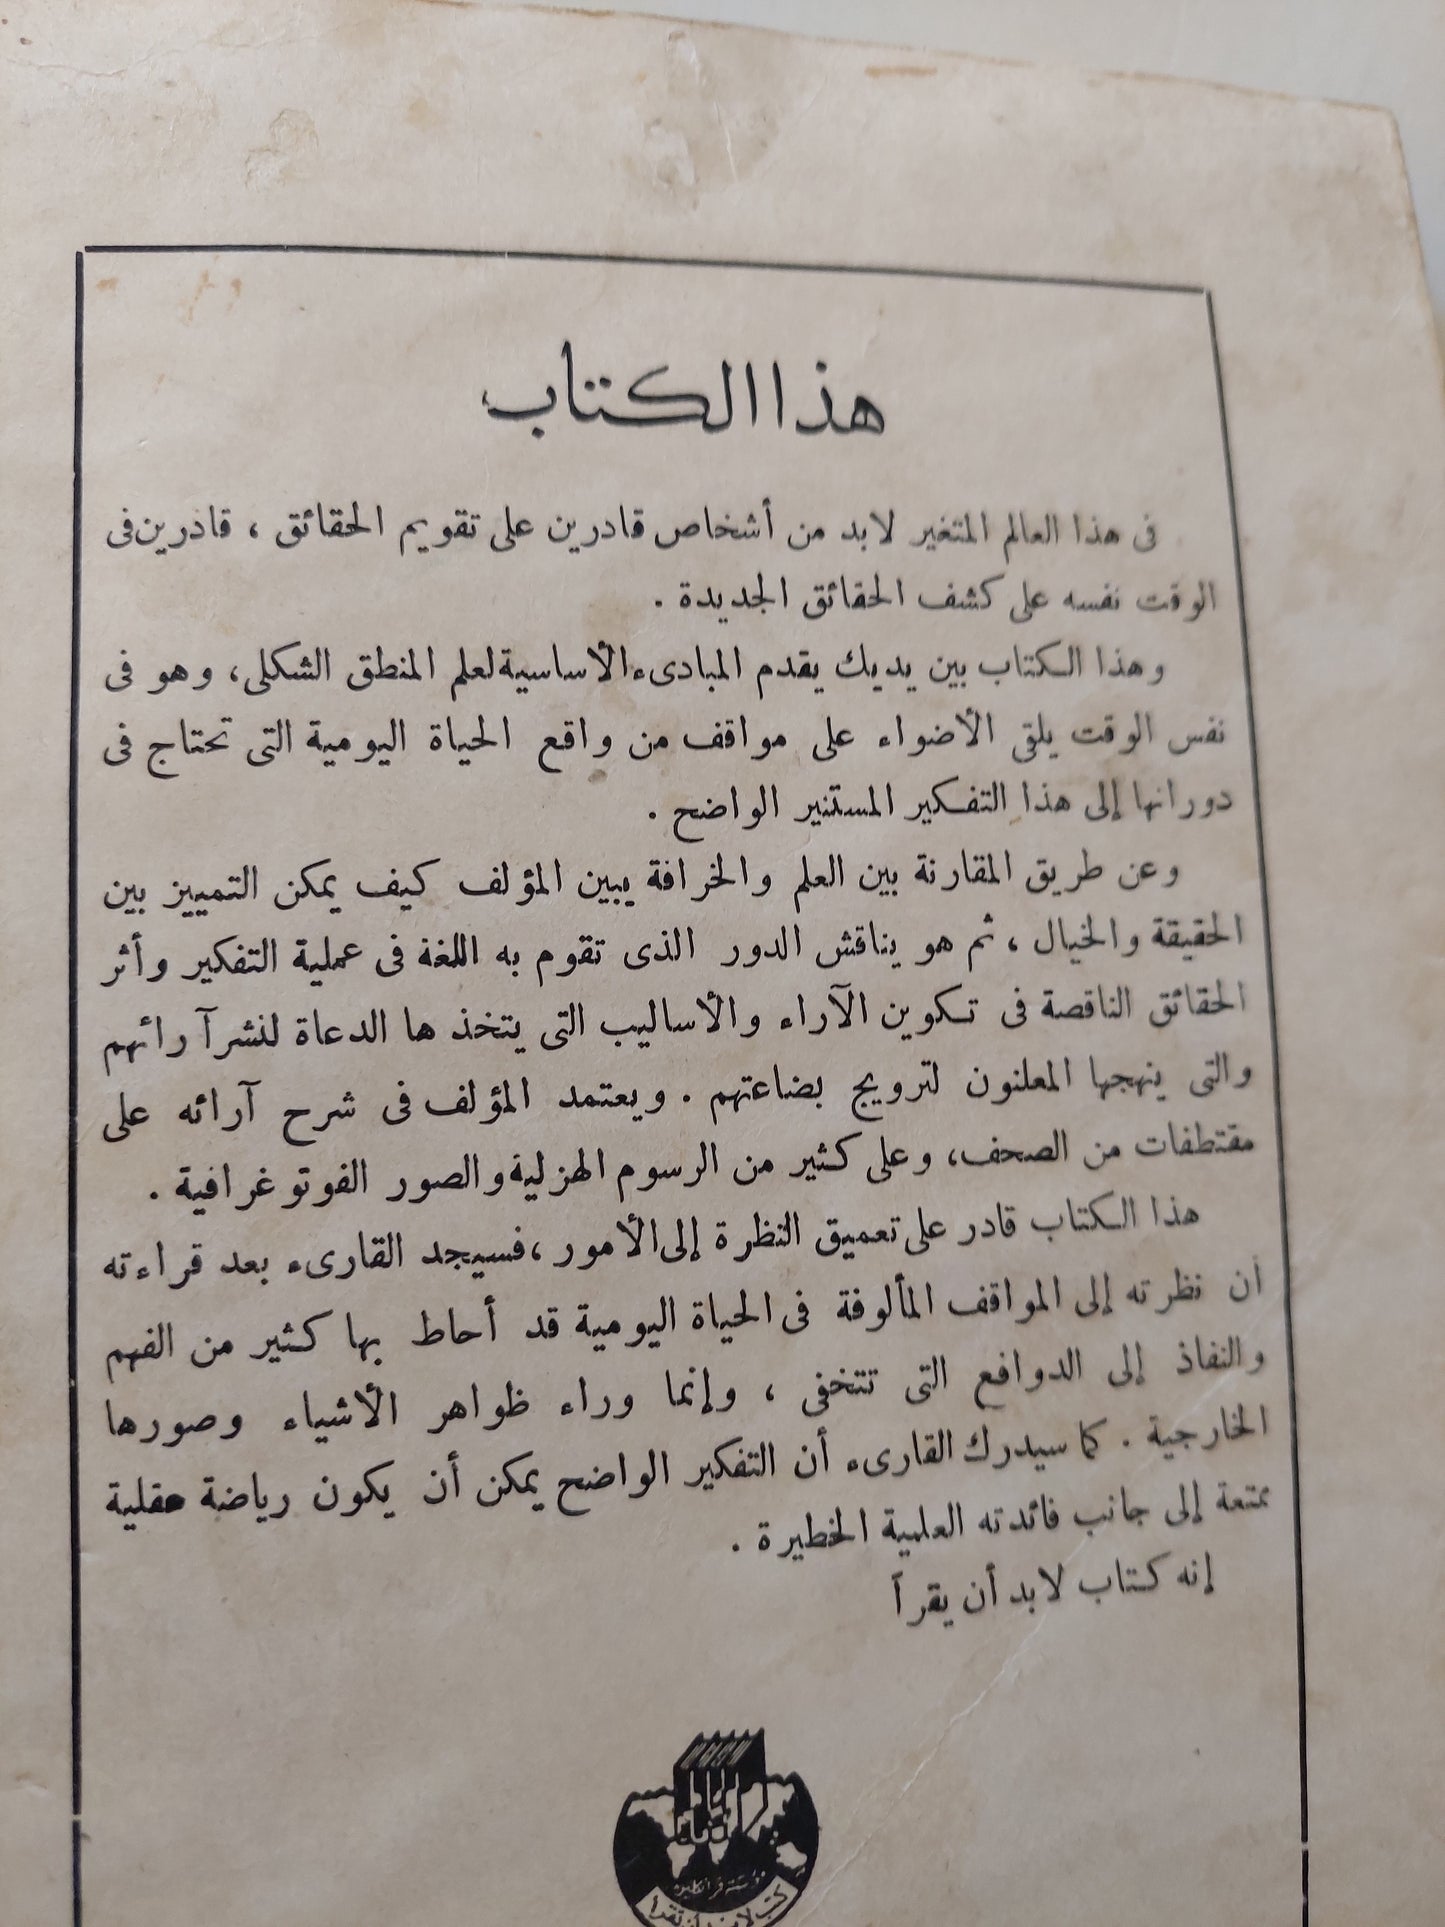 هذا الكتاب
فى هذا العالم المتغير لابد من أشخاص قادرين على تقويم الحقائق ، قادرين فى
الوقت نفسه على كشف الحقائق الجديدة .
وهذا الكتاب بين يديك يقدم المبادىء الأساسية لعلم المنطق الشكلى، وهو فى
نفس الوقت يلقى الأضواء على مواقف من واقع الحياة اليومية التى تحتاج فى
دورانها إلى هذا التفكير المستنير الواضح .
وعن طريق المقارنة بين العلم والخرافة يبين المؤلف كيف يمكن التمييز بين
الحقيقة والخيال ، ثم هو يناقش الدور الذى تقوم به اللغة فى عملية التفكير وأثر
الحقائق الناقصة فى تكوين الآراء والأساليب التى يتخذ ها الدعاة لنشر آ رائهم
والتى ينهجها المعلنون لترويج بضاعتهم . ويعتمد المؤلف فى شرح آرائه على
مقتطفات من الصحف، وعلى كثير من الرسوم الهزلية والصور الفوتو غرافية .
هذا الكتاب قادر على تعميق النظرة إلى الأمور ، فسيجد القارىء بعد قراءته
أن نظرته إلى المواقف المألوفة فى الحياة اليومية قد أحاط بها كثير من الفهم
والنفاذ إلى الدوافع التى تتخفى ، وإنما وراء ظواهر الأشياء وصورها
الخارجية . كما سيدرك القارىء أن التفكير الواضح يمكن أن يكون رياضة عقلية
ممتعة إلى جانب فائدته العلمية الخطيرة .
إنه كتاب لابد أن يقرأ
مؤسسة فرانكلين
كتب لابد أن تقرأ